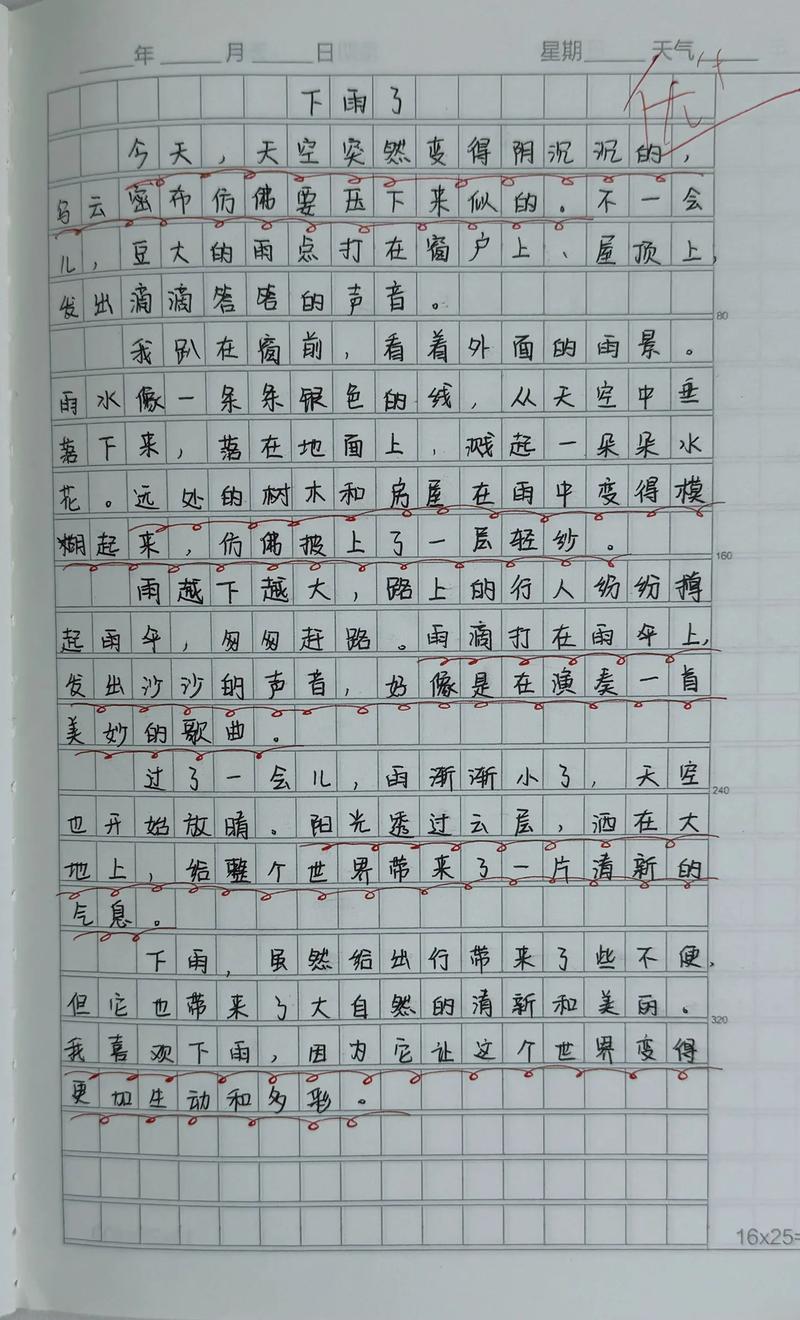 年 月 日 星期 天气
优
下雨了
今天，天空突然变得阴沉沉的，
乌云密布仿佛要压下来似的。不一会
儿，豆大的雨点打在窗户上、屋顶上，
发出滴滴答答的声音。
80
我趴在窗前，看着外面的雨景。
雨水像一条条银色的线，从天空中垂
落下来，落在地面上，溅起一朵朵水
花。远处的树木和房屋在雨中变得模
糊起来，仿佛披上了一层轻纱。
160
雨越下越大，路上的行人纷纷撑
起雨伞，匆匆赶路。雨滴打在雨伞上，
发出沙沙的声音，好像是在演奏一首
美妙的歌曲。
过了一会儿，雨渐渐小了，天空
240
也开始放晴。阳光透过云层，洒在大
地上，给整个世界带来了一片清新的
气息。
下雨，虽然给出行带来了些不便，
但它也带来了大自然的清新和美丽。
320
我喜欢下雨，因为它让这个世界变得
更加生动和多彩。
16x25=